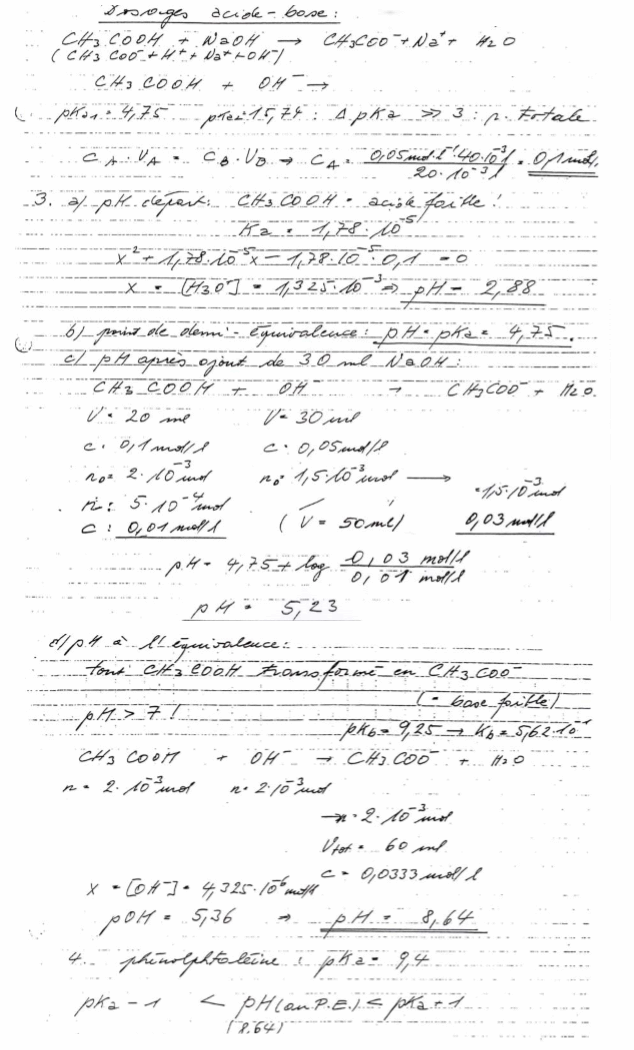 Dosages acide-base :
CH3COOH + NaOH → CH3COO⁻ + Na⁺ + H2O
(CH3COO⁻ + H⁺ + Na⁺ + OH⁻)
CH3COOH + OH⁻ →
pKa1 = 4,75 pKa2 = 15,74 : Δ pKa >> 3 : r. totale
CA · VA = CB · VB → CA = 0,05 mol·l⁻¹·40·10⁻³l / 20·10⁻³l = 0,1 mol/l
3. a) pH départ : CH3COOH = acide faible !
Ka = 1,78·10⁻⁵
x² + 1,78·10⁻⁵x − 1,78·10⁻⁵·0,1 = 0
x = [H3O⁺] = 1,325·10⁻³ ⇒ pH = 2,88
b) point de demi-équivalence : pH = pKa = 4,75.
c) pH après ajout de 30 ml NaOH :
CH3COOH + OH⁻ → CH3COO⁻ + H2O.
V = 20 ml V = 30 ml
c = 0,1 mol/l c = 0,05 mol/l
n0 = 2·10⁻³ mol n0 = 1,5·10⁻³ mol → = 1,5·10⁻³ mol
n : 5·10⁻⁴ mol
c : 0,01 mol/l (V = 50 ml) 0,03 mol/l
pH = 4,75 + log 0,03 mol/l / 0,01 mol/l
pH = 5,23
d) pH à l'équivalence :
tout CH3COOH transformé en CH3COO⁻
(= base faible)
pH > 7 !
pKb = 9,25 → Kb = 5,62·10⁻¹
CH3COOH + OH⁻ → CH3COO⁻ + H2O
n = 2·10⁻³ mol n = 2·10⁻³ mol
→ n = 2·10⁻³ mol
Vtot = 60 ml
c = 0,0333 mol/l
x = [OH⁻] = 4,325·10⁻⁶ mol/l
pOH = 5,36 ⇒ pH = 8,64
4. phénolphtaléine : pKa = 9,4
pKa − 1 < pH (au P.E.) < pKa + 1
(8.64)